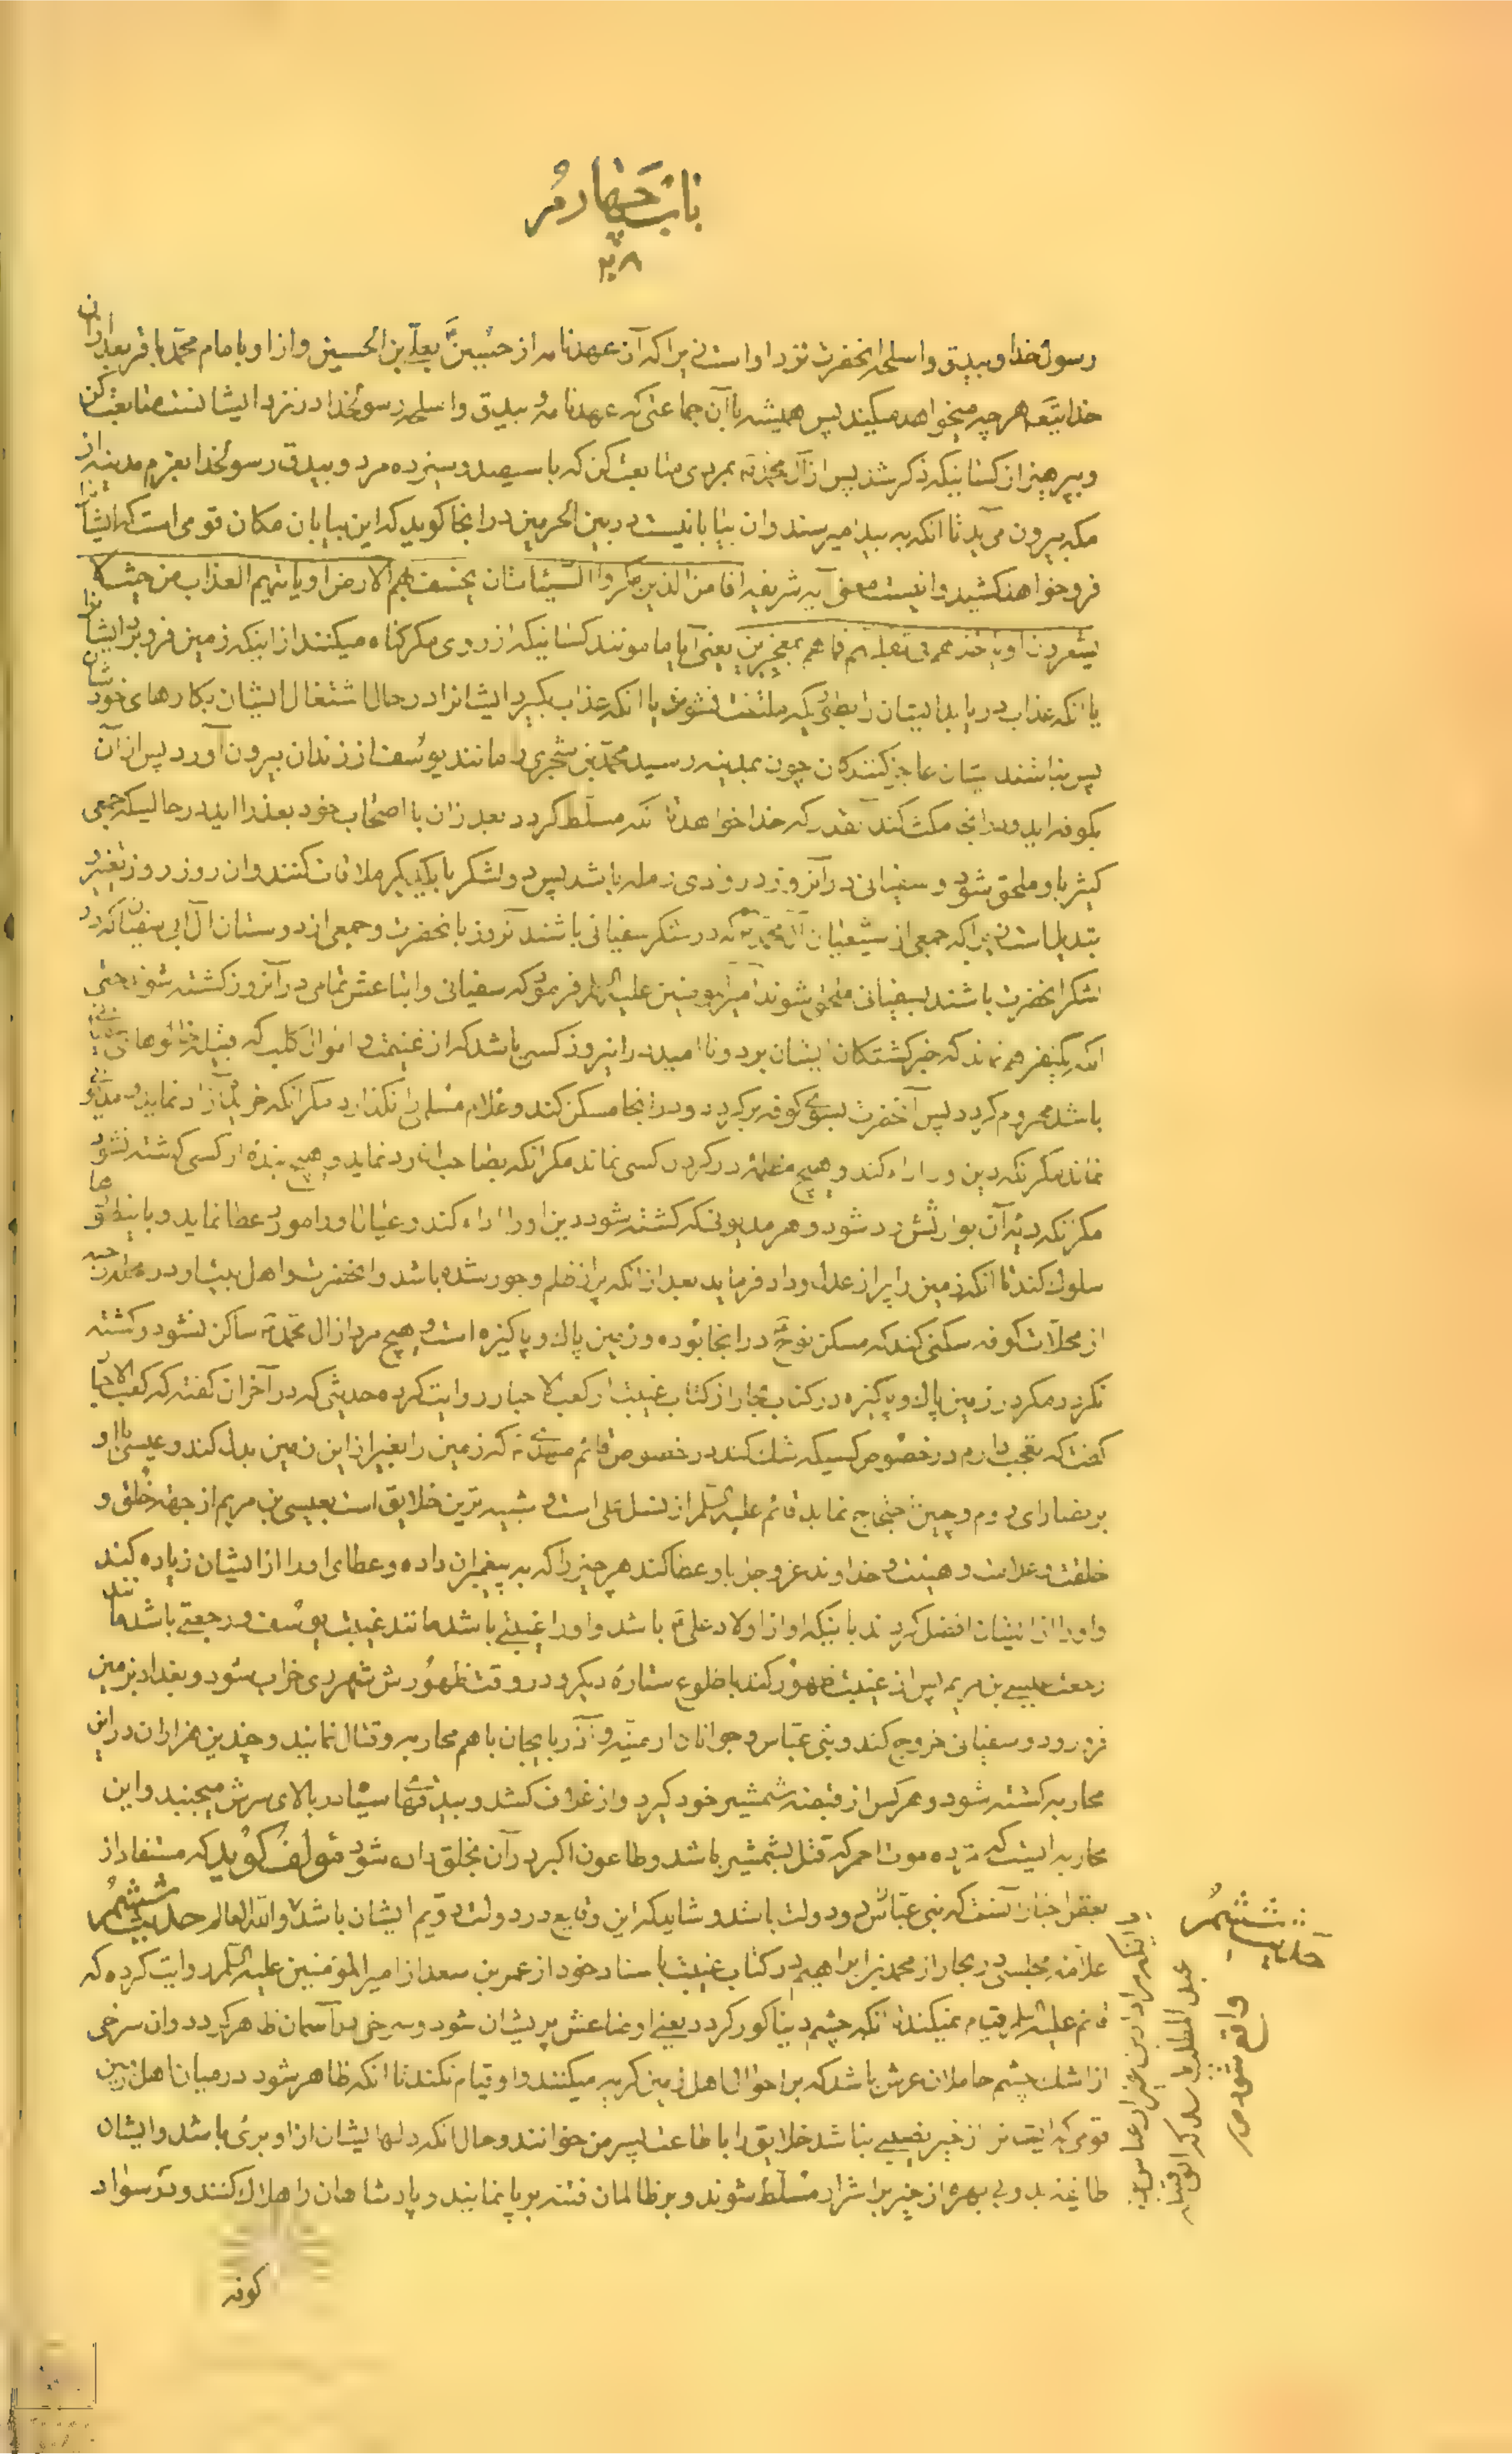 باب چهارم
۲۰۸
رسول خدا و بیدق و اسلحه انحضرت نزد او است زیرا که آن عهدنامه از حسین بعلی بن الحسین و از او بامام محمد باقر بعد از ان
خدایتعه هر چه میخواهد میکند پس همیشه با آن جماعتی که عهدنامه و بیدق و اسلحه رسولخدا در نزد ایشانست متابعت کن
و بپرهیز از کسانیکه ذکر شد پس از آل محمد بمردی متابعت کن که با سیصد و سیزده مرد و بیدق رسولخدا بعزم مدینه از
مکه بیرون می آید تا انکه به بیدا میرسند و ان بیابانیست در بین الحرمین در انجا کوید که این بیابان مکان قومی است که ایشانرا
فرو خواهد کشید و اینست معنی آیه شریفه افامن الذین مکروا السیئات ان یخسف بهم الارض او یاتیهم العذاب من حیث لا
یشعرون او یاخذهم فی تقلبهم فما هم بمعجزین یعنی آیا مامونند کسانیکه از روی مکر کناه میکنند از اینکه زمین فرو برد ایشانرا
یا انکه عذاب دریابد ایشان را بطوریکه ملتفت نشوند یا انکه عذاب بکیرد ایشانرا در حال اشتغال ایشان بکارهای خودشان
پس نباشند ایشان عاجز کنندکان چون بمدینه رسید محمد بن شجری را مانند یوسف از زندان بیرون آورد پس از آن
بکوفه اید و در انجا مکث کند آنقدر که خدا خواهد تا انکه مسلط کردد بعد از ان با اصحاب خود بعذرا اید در حالیکه جمعی
کثیر باو ملحق شود و سفیانی در آنروز در وادی رمله باشد پس دو لشکر با یکدیکر ملاقات کنند و ان روز روز تغییر و
تبدیل است زیرا که جمعی از شیعیان آل محمد که در لشکر سفیانی باشند آنروز بانحضرت و جمعی از دوستان آل ابی سفیان که در
لشکر انحضرت باشند بسفیانی ملحق شوند امیرالمومنین علیه السلام فرمود که سفیانی و اتباعش تمامی در آنروز کشته شوند حتی
انکه یکنفر هم نماند که خبر کشتکان ایشان برد و ناامید در انروز کسی باشد که از غنیمت و اموال کلب که قبیله
باشد محروم کردد پس آنحضرت بسوی کوفه برکردد و در انجا مسکن کند و غلام مسلمی را نکذارد مکر انکه خریده آزاد نماید و مدیونی
نماند مکر انکه دین او را اداء کند و هیچ مظلمه در کردن کسی نماند مکر انکه بصاحبان رد نماید و هیچ بنده از کسی کشته نشود
مکر انکه دیه آن بوارثش رد شود و هر مدیونی که کشته شود دین او را اداء کند و عیال او را مورد عطا نماید و باینطورها
سلوک کند تا انکه زمین را پر از عدل و داد فرماید بعد از انکه پر از ظلم و جور شده باشد و انحضرت و اهل بیت او در محله رحبه
از محلات کوفه سکنی کند که مسکن نوح در انجا بوده و زمین پاک و پاکیزه است و هیچ مرد از ال محمد ساکن نشود و کشته
نکردد مکر در زمین پاک و پاکیزه در کتاب بحار از کتاب غیبت از کعب الاحبار روایت کرده حدیثی که در آخر ان کفته که کعب الاحبار
کفت که تعجب دارم در خصوص کسیکه شک کند در خصوص قائم مهدی که زمین را بغیر از این زمین بدل کند و عیسی با او
بر نصارای روم و چین احتجاج نماید قائم علیه السلام از نسل علی است و شبیه ترین خلایق است بعیسی بن مریم از جهة خلق و
خلقت و علامت و هیئت و خداوند عز و جل باو عطا کند هر چیز را که به پیغمبران داده و عطای او را از ایشان زیاده کند
و او را از ایشان افضل کرداند باینکه او از اولاد علی باشد و او را غیبتی باشد مانند غیبت یوسف و رجعتی باشد مانند
رجعت عیسی بن مریم پس از غیبت ظهور کند با طلوع ستاره دیکر و در وقت ظهورش شهر ری خراب شود و بغداد بزمین
فرو رود و سفیانی خروج کند و بنی عباس و جوانان ارمنیه و آذربایجان با هم محاربه و قتال نمایند و چندین هزاران در این
محاربه کشته شود و هر کس از قبضه شمشیر خود کیرد و از غلاف کشد و بیدقهای سیاه در بالای سرش میجنبد و این
محاربه ایست که موت احمر که قتل بشمشیر باشد و طاعون اکبر در آن بخلق داده شود مؤلف کوید که مستفاد از
بعض اخبار آنست که بنی عباس را دو دولت باشد و شاید که این وقایع در دولت دویم ایشان باشد والله العالم حدیث ششم
علامه مجلسی در بحار از محمد بن ابراهیم در کتاب غیبت باسناد خود از عمر بن سعد از امیرالمؤمنین علیه السلام روایت کرده که
قائم علیه السلام قیام نمیکند تا انکه چشم دنیا کور کردد یعنی اوضاعش پریشان شود و سرخی در آسمان ظاهر کردد و ان سرخی
از اشک چشم حاملان عرش باشد که بر احوال اهل زمین کریه میکنند و او قیام نکند تا انکه ظاهر شود در میان اهل زمین
قومی که ایشانرا از خیر نصیبی نباشد خلایق را باطاعت پسر من خوانند و حال انکه دلهای ایشان از او بری باشد و ایشان
طایفه بد و بی بهره از خیر بر اشرار مسلط شوند و بر ظالمان فتنه برپا نمایند و پادشاهان را هلاک کنند و در سواد
کوفه
حدیث ششم
واقع شود